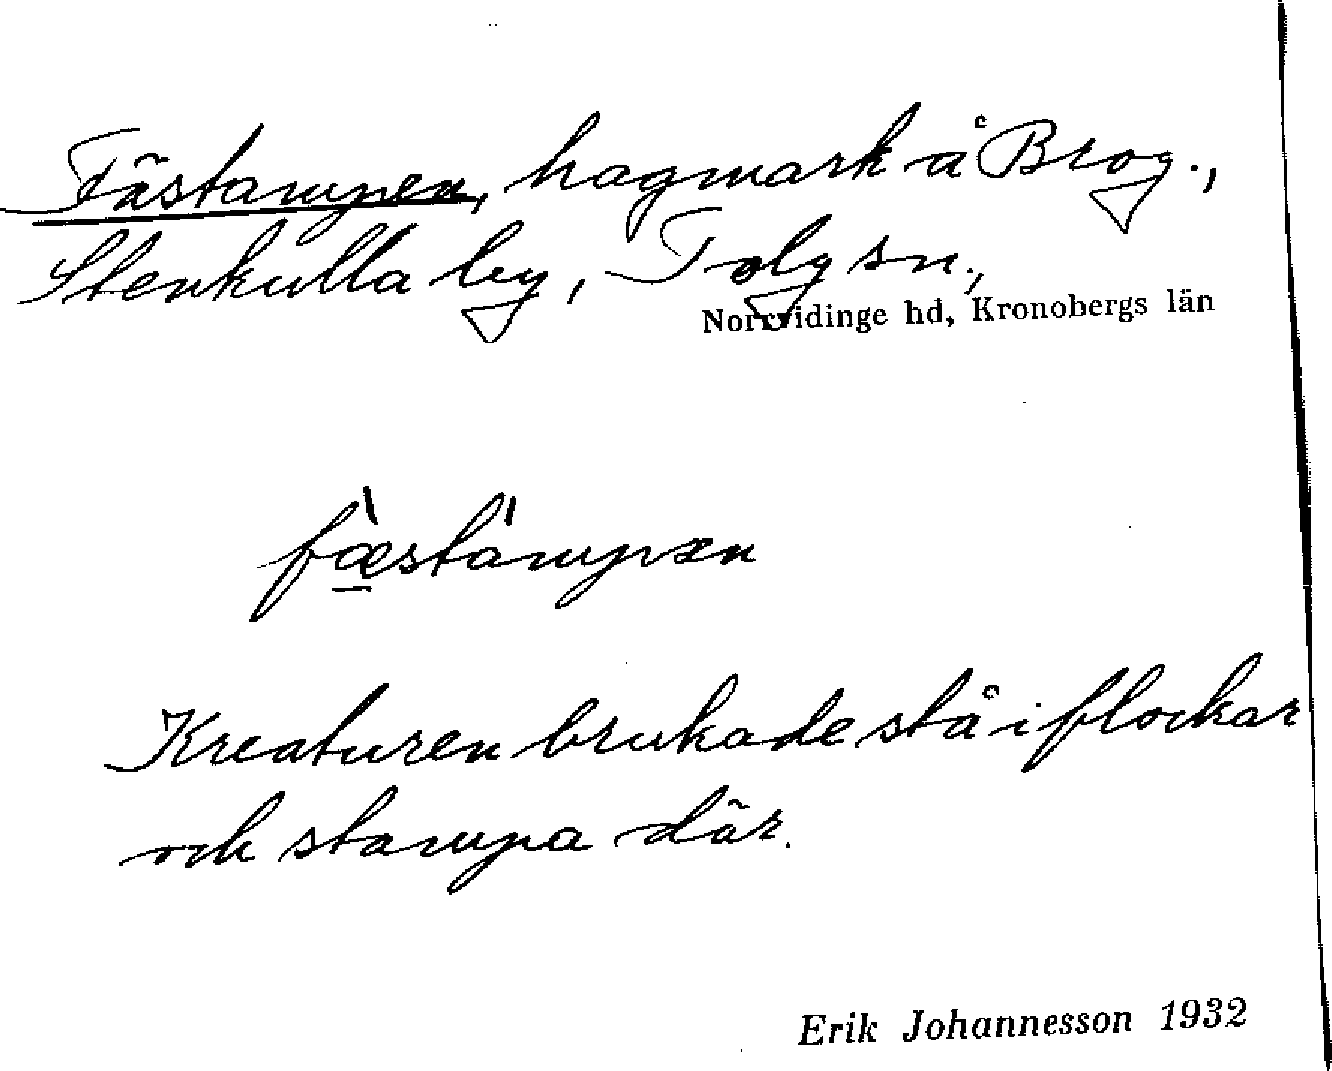 Fästampen, hagmark å Brog.,
Stenkulla by, Tolg sn.,
Norrvidinge hd, Kronobergs län
fæ̀stámpæn
Kreaturen brukade stå i flockar
och stampa där.
Erik Johannesson 1932